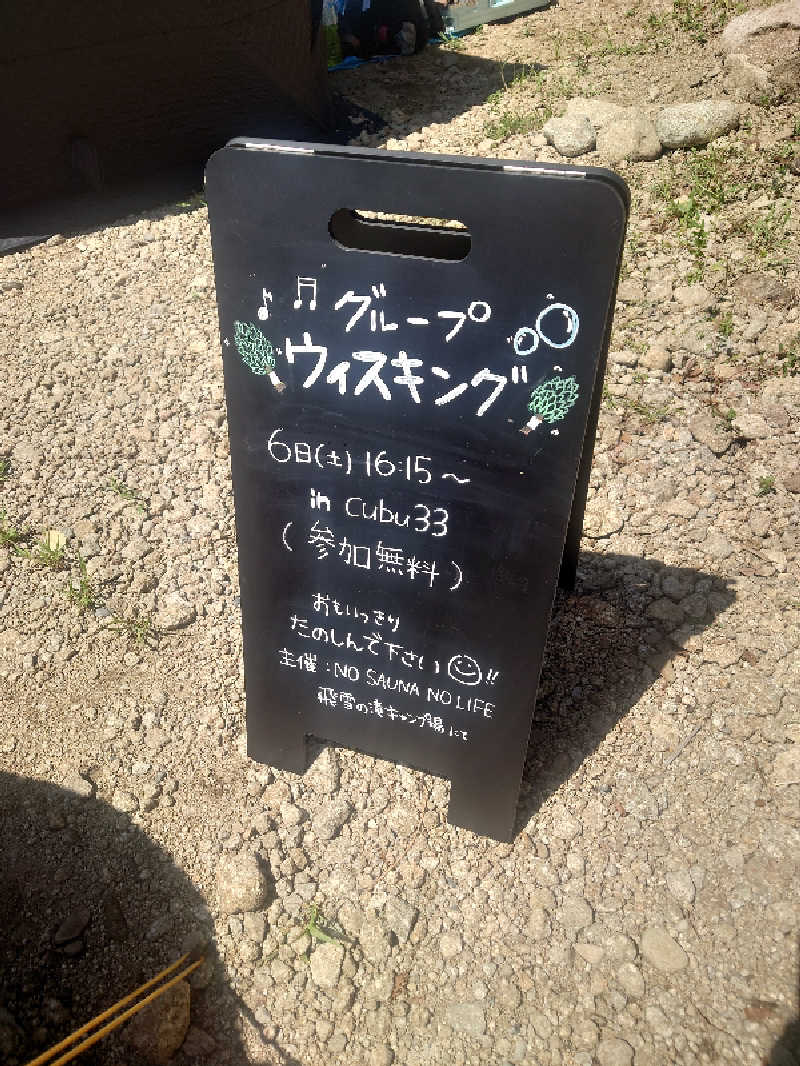 グループ
ウィスキング
6日(土) 16:15〜
in cubu33
(参加無料)
おもいっきり
たのしんで下さい!!
主催:NO SAUNA NO LIFE
飛雪の滝キャンプ場にて